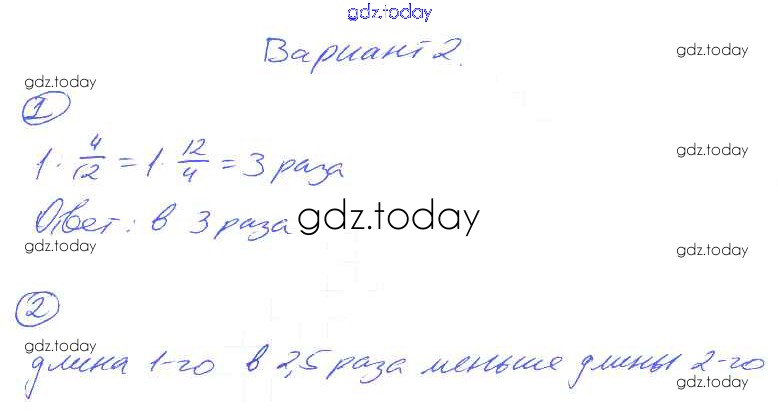 gdz.today
Вариант 2.
gdz.today
gdz.today
1
1 · 4/12 = 1 · 12/4 = 3 раза
gdz.today
Ответ: в 3 раза
gdz.today
gdz.today
gdz.today
2
gdz.today
длина 1-го в 2,5 раза меньше длины 2-го
gdz.today